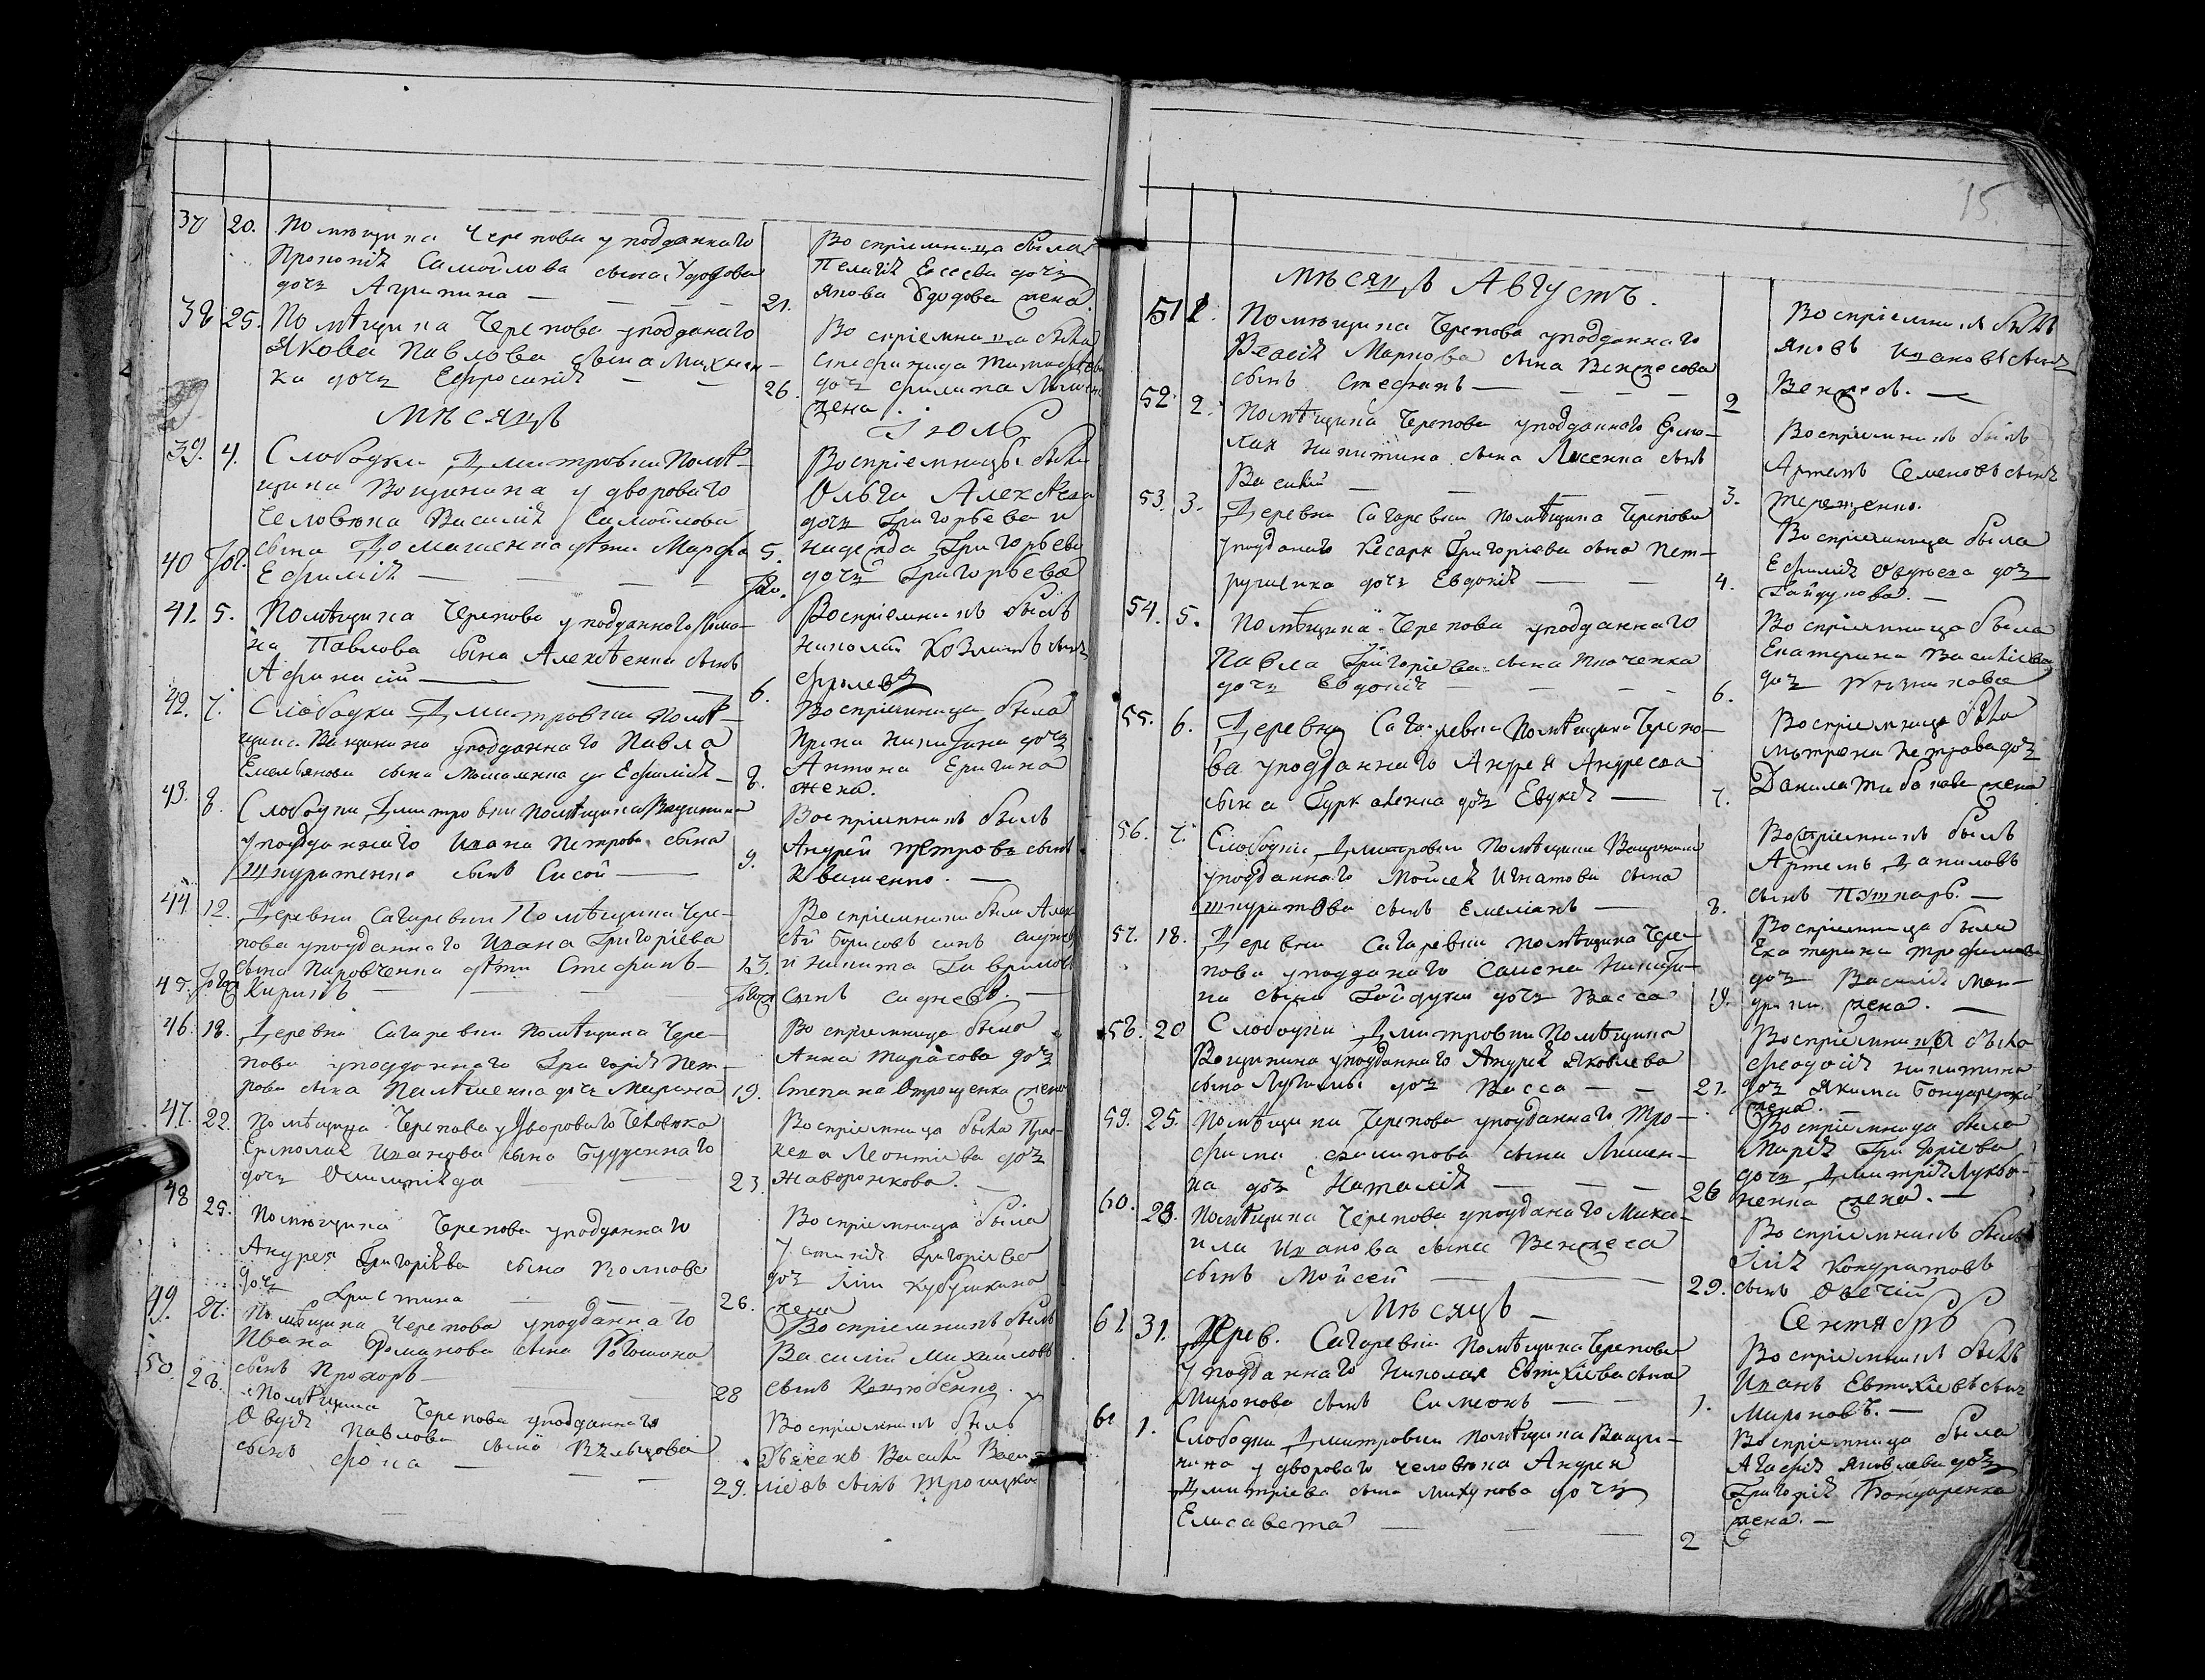 37 20. Помѣщика Черепова у подданнаго
Прокопія Самойлова сына Удодова
дочь Агрипина —
21.
Воспріемница была
Пелагія Евсеева дочь
Якова Удодова жена
38 25. Помѣщика Черепова у поданаго
Якова Павлова сына Михнен-
ка дочь Ефросинія —
26.
Воспріемница была
Стефанида Тимофѣева
дочь Филипа
жена.
Мѣсяцъ Іюль
39. 4. Слободки Дмитровки Помѣ-
щика Вощинина у двороваго
человѣка Василія Самойлова
сына Домашенка дѣти Марфа
40 Ефимія —
5.
Воспріемницы были
Ольга Алексѣева
дочь Григорьева и
надежда Григорьева
дочь Григорьева
41. 5. Помѣщика Черепова у подданнаго
Павлова сына Алексѣенка сынъ
Афанасій —
6.
Воспріемникъ былъ
Николай Козминъ сынъ
Фролевъ
42. 7. Слободки Дмитровки помѣ-
щика Вощинина у подданнаго Павла
Емельянова сына до Ефимія —
8.
Воспріемница была
Ирина Никитина дочь
Антона Еригина
жена.
43. 8. Слободки Дмитровки помѣщика Вощинина
у подданнаго Ивана Петрова сына
Шкуратенка сынъ Сисой —
9.
Воспріемникъ былъ
Андрей Петровъ сынъ
Квашенко. —
44 12. Деревни Сагаревки Помѣщика Чере-
пова у подданнаго Ивана Григоріева
сына Пировченка дѣти Стефанъ —
45. Кирилъ —
13.
Воспріемники были Алек-
сѣй Борисовъ сынъ
и Никита Гавриловъ
сынъ Сидневъ. —
46. 18. Деревни Сагаревки помѣщика Чере-
пова у подданнаго Григорія Пет-
рова сына дочь Марина
19.
Воспріемница была
Анна Тарасова дочь
Степана Отрощенка жена
47. 22. Помѣщика Черепова у Двороваго Человѣка
Ермолая Иванова сына Будченнаго
дочь Олимпіяда
23.
Воспріемница была Прас-
кева Леонтіева дочь
Жаворонкова. —
48 25. Помѣщика Черепова у подданнаго
Андрея Григоріева сына Волкова
дочь Христина
26.
Воспріемница была
Устинія Григоріева
доч Іліи Кубушкина
жена
49. 27. Помѣщика Черепова у подданнаго
Ивана Романова сына Рогошина
сынъ Прохоръ —
28
Воспріемникъ былъ
Василій Михайловъ
сынъ
50. 28. Помѣщика Черепова у подданнаго
Павлова сына
сынъ Фока —
29.
Воспріемникъ былъ
Дьячекъ Василій Васи-
ліевъ сынъ Троицкій
15.
Мѣсяцъ Августъ.
51 1. Помѣщика Черепова у подданнаго
Власія Маркова сына Венжесова
сынъ Стефанъ —
2
Воспріемникъ былъ
Яковъ Ивановъ сынъ
Венжесъ. —
52. 2. Помѣщика Черепова у подданнаго Ермо-
лая Никитина сына Лисенка сынъ
Василій —
3.
Воспріемникъ былъ
Артемъ Семеновъ сынъ
Терещенко.
53. 3. Деревни Сагаревки помѣщика Черепова
у поданаго Кесаря Григоріева сына Пет-
рушенка дочь Евдокія —
4.
Воспріемница была
Ефимія дочь
Гайдукова. —
54. 5. Помѣщика Черепова у подданнаго
Павла Григоріева сына Ткаченка
дочь Евдокія —
6.
Воспріемница была
Екатерина Василіева
дочь
55. 6. Деревни Сагаревки Помѣщика Черепо-
ва у подданнаго Андрея Андреева
сына дочь —
7.
Воспріемница была
Матрена Петрова дочь
Данила жена
56. 7. Слободки Дмитровки Помѣщика Вощинина
у подданнаго Моисея Игнатова сына
Шкуратова сынъ Емеліанъ —
8.
Воспріемникъ былъ
Артемъ Даниловъ
сынъ —
57. 18. Деревни Сагаревки помѣщика Чере-
пова у подданаго Никити-
на сына Гайдука дочь Васса
19.
Воспріемница была
Екатерина Трофимова
дочь Василія Ман-
жена. —
58. 20 Слободки Дмитровки Помѣщика
Вощинина у подданнаго Андрея Яковлева
сына дочь Васса —
21.
Воспріемница была
Феодосія Никитина
доч Якима Бондаренка
жена.
59. 25. Помѣщика Черепова у подданнаго Тро-
фима Филипова сына Лишен-
ка доч Наталія —
26
Воспріемница была
Марія Григоріева
дочь Дмитрія
жена. —
60. 28. Помѣщика Черепова у поданаго Миха-
ила Иванова сына Венжеса
сынъ Мойсей —
29.
Воспріемникъ былъ
Ілія Кондратовъ
сынъ
Мѣсяцъ — Сентябрь
61 31. Дерев. Сагаревки Помѣщика Черепова
у подданнаго Николая Евтихіева сына
Миронова сынъ Симеонъ —
1.
Воспріемникъ былъ
Иванъ Евтихіевъ сынъ
Мироновъ. —
62 1. Слободки Дмитровки помѣщика Вощи-
нина у двороваго человѣка Андрея
Дмитріева сына Михунова дочь
Елисавета —
2
Воспріемница была
Агафія Яковлева дочь
Григорія Бондаренка
жена. —